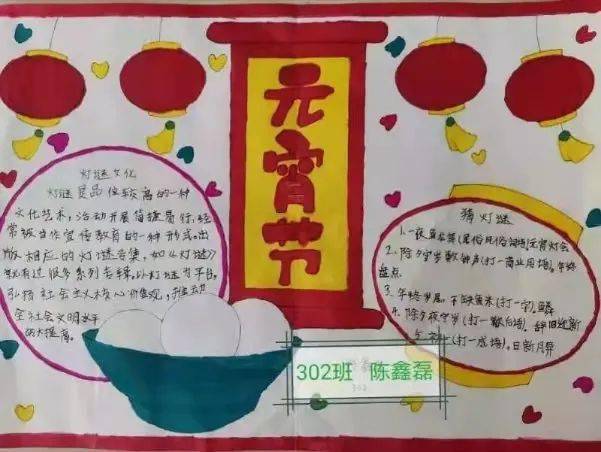 元宵节
灯谜文化
灯谜是品位较高的一种
文化艺术，活动开展简捷易行，经
常被当作宣传教育的一种形式。出
版相应的灯谜专集，如《灯谜》
就有过很多系列专辑。以灯谜为平台，
弘扬社会主义核心价值观，推动
全社会文明水平
的大提高。
猜灯谜
元宵灯会
2、除夕守岁数钟声（打一商业用语）。年终
盘点
3、年终岁尾，不缺鱼米（打一字）鳞
4、除夕夜守岁（打一歇后语）。辞旧迎新
（打一成语）。日新月异
302班 陈鑫磊